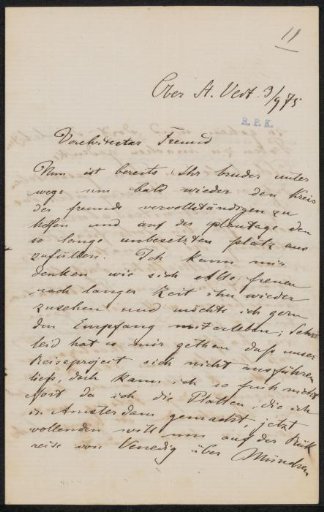 11
Ober St. Veit 3/9 75
R.P.K.
Verehrtester Freund
Nun ist bereits Ihr bruder unter
wegs um bald wieder den Kreis
der freunde vervollständigen zu
helfen und auf der plantage den
so lange unbesetzten platz aus
zufüllen. Ich kann mir
denken wie sich Alle freuen
nach langer Zeit ihn wieder
zusehen und möchte ich gern
den Empfang miterleben, Sehr
leid hat es mir gethan dass unser
Reiseproject sich nicht ausführen
liess, doch kann ich so früh nicht
fort da ich die Platten, die ich
in Amsterdam gemacht, jetzt
vollenden will und auf der Rück
reise von Venedig über München